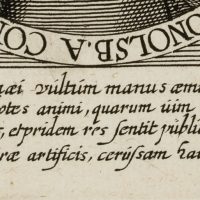 ONOLSB. A CO
aei vultum manus æmu
otes animi, quarum uim
s, etpridem res sentit públi
ræ artificis, cerússam hau